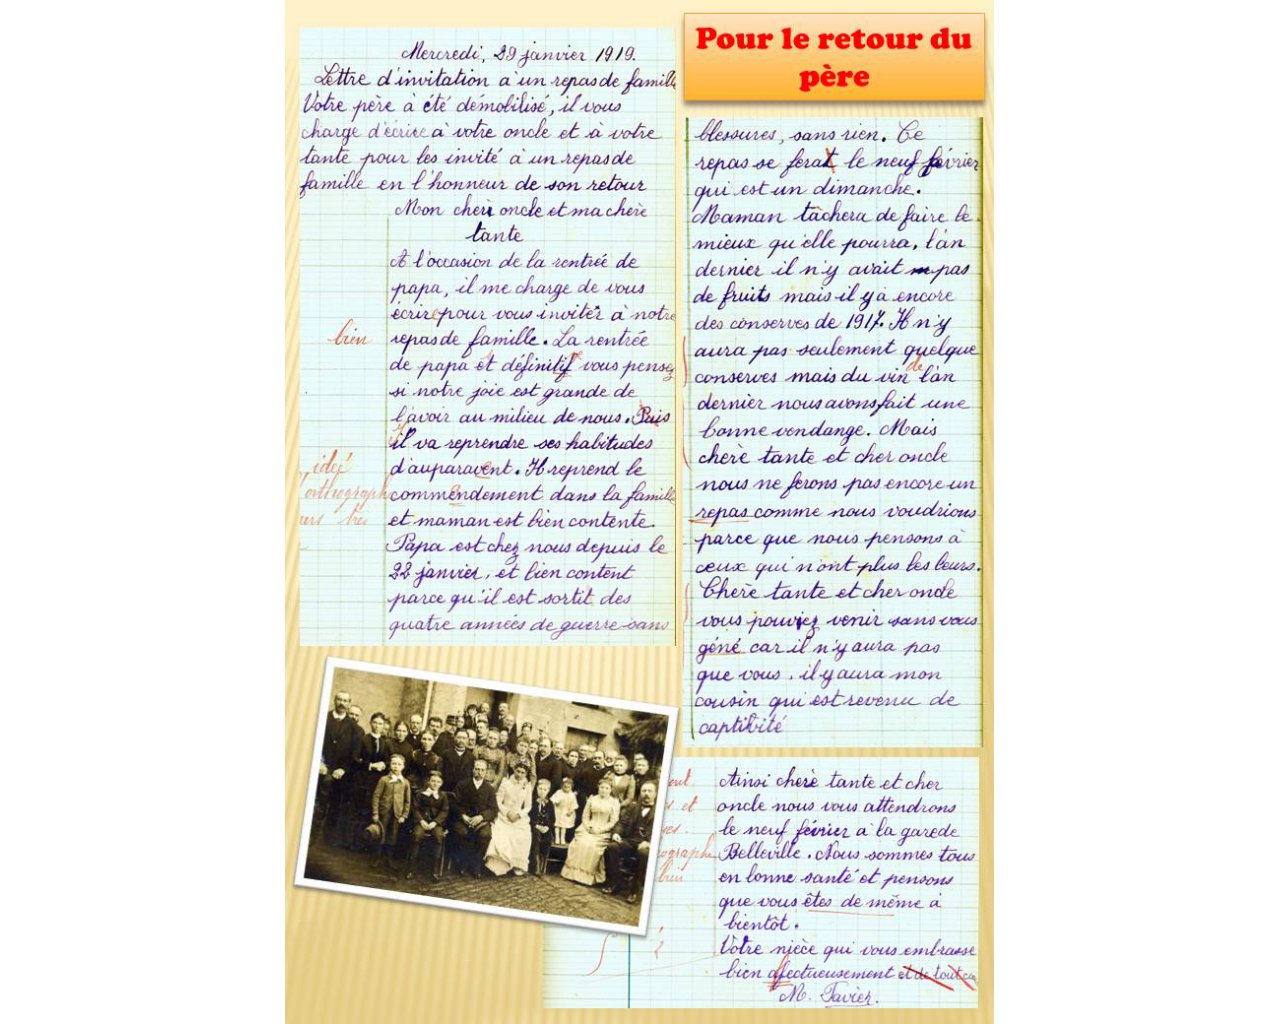 Pour le retour du
père
Mercredi, 29 janvier 1919.
Lettre d'invitation à un repas de famille
Votre père à été démobilisé, il vous
charge d'écrire à votre oncle et à votre
tante pour les invité à un repas de
famille en l'honneur de son retour
Mon cher oncle et ma chère
tante
A l'occasion de la rentrée de
papa, il me charge de vous
écrire pour vous inviter à notre
repas de famille. La rentrée
de papa et définitif vous pensez
si notre joie est grande de
l'avoir au milieu de nous. Puis
il va reprendre ses habitudes
d'auparavent. Il reprend le
commendement dans la famille
et maman est bien contente.
Papa est chez nous depuis le
22 janvier, et bien content
parce qu'il est sortit des
quatre années de guerre sans
bien
idej
orthograph
très
blessures, sans rien. Ce
repas se ferat le neuf février
qui est un dimanche.
Maman tâchera de faire le
mieux qu'elle pourra, l'an
dernier il n'y avait pas
de fruits mais il y a encore
des conserves de 1917. Il n'y
aura pas seulement quelque
conserves mais du vin de l'an
dernier nous avons fait une
bonne vendange. Mais
chère tante et cher oncle
nous ne ferons pas encore un
repas comme nous voudrions
parce que nous pensons à
ceux qui n'ont plus les leurs.
Chère tante et cher oncle
vous pouviez venir sans vous
géné car il n'y aura pas
que vous, il y aura mon
cousin qui est revenu de
captibité
Ainsi chère tante et cher
oncle nous vous attendrons
le neuf février à la garede
Belleville. Nous sommes tous
en bonne santé et pensons
que vous êtes de même à
bientôt.
Votre nièce qui vous embrasse
bien affectueusement et de tout
M. Tavier.